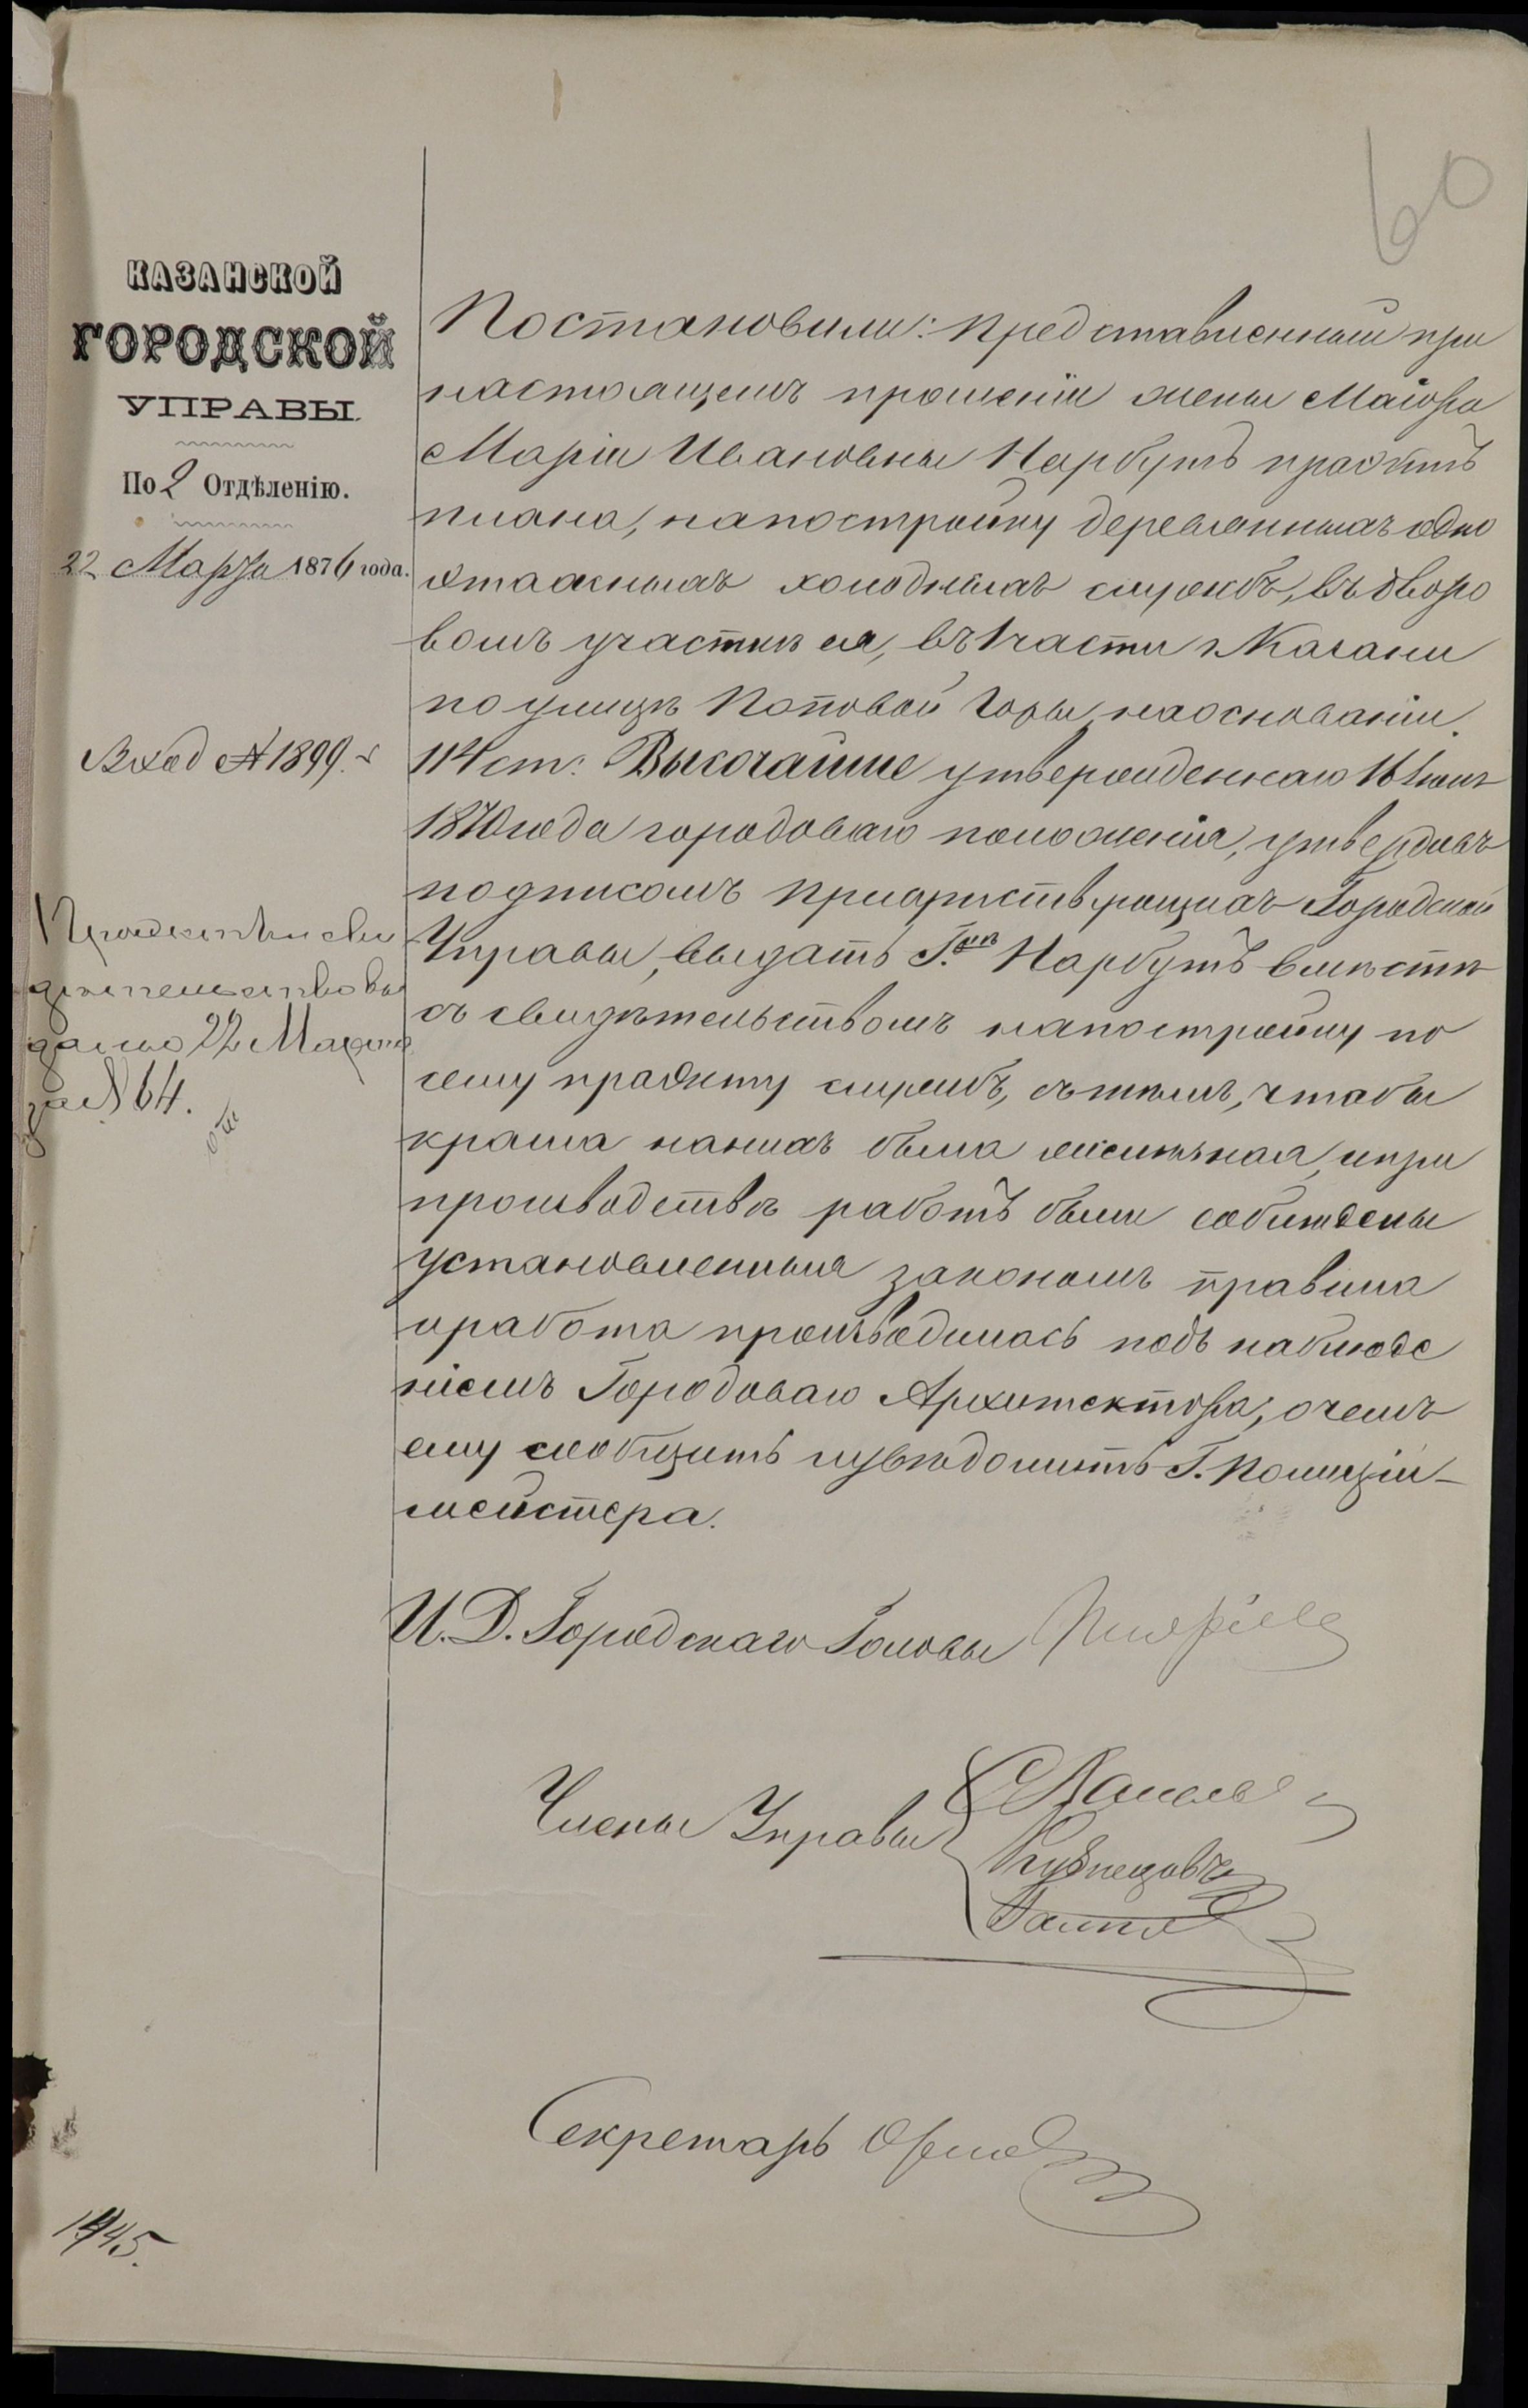 60
КАЗАНСКОЙ
ГОРОДСКОЙ
УПРАВЫ.
По 2 Отдѣленію.
22 Марта 1876 года.
Вход № 1899.
Проэктъ и сви
дѣтельство вы
дано 22 Марта
за № 64.
Постановили: Представленный при
настоящемъ прошеніи жены Маіора
Маріи Ивановны Нарбутъ проэктъ
плана, на постройку деревянныхъ одно
этажныхъ холодныхъ службъ, въ дворо
вомъ участкѣ ея, въ 1 части г. Казани
по улицѣ Поповой Горы, на основаніи
114 ст: Высочайше утвержденнаго 16 Іюня
1870 года городоваго положенія, утвердивъ
подписомъ присутствующихъ Городской
Управы, выдать Г.жѣ Нарбутъ вмѣстѣ
съ свидѣтельствомъ на постройку по
сему проэкту службъ, съ тѣмъ, чтобы
крыша на нихъ была желѣзная, и при
производствѣ работъ были соблюдены
установленныя закономъ правила
и работа производилась подъ наблюде
ніемъ Городоваго Архитектора, о чемъ
ему сообщить и увѣдомить Г. Полиціи-
мейстера.
И. Д. Городскаго Головы
Члены Управы
Кузнецовъ
Секретарь Орлов
1445.